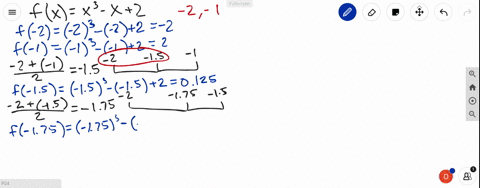 f(x) = x³ - x + 2   -2, -1
f(-2) = (-2)³ - (-2) + 2 = -2
f(-1) = (-1)³ - (-1) + 2 = 2
(-2 + (-1))/2 = -1.5   -2   -1.5   -1
f(-1.5) = (-1.5)³ - (-1.5) + 2 = 0.125
(-2 + (-1.5))/2 = -1.75   -2   -1.75   -1.5
f(-1.75) = (-1.75)³ - (